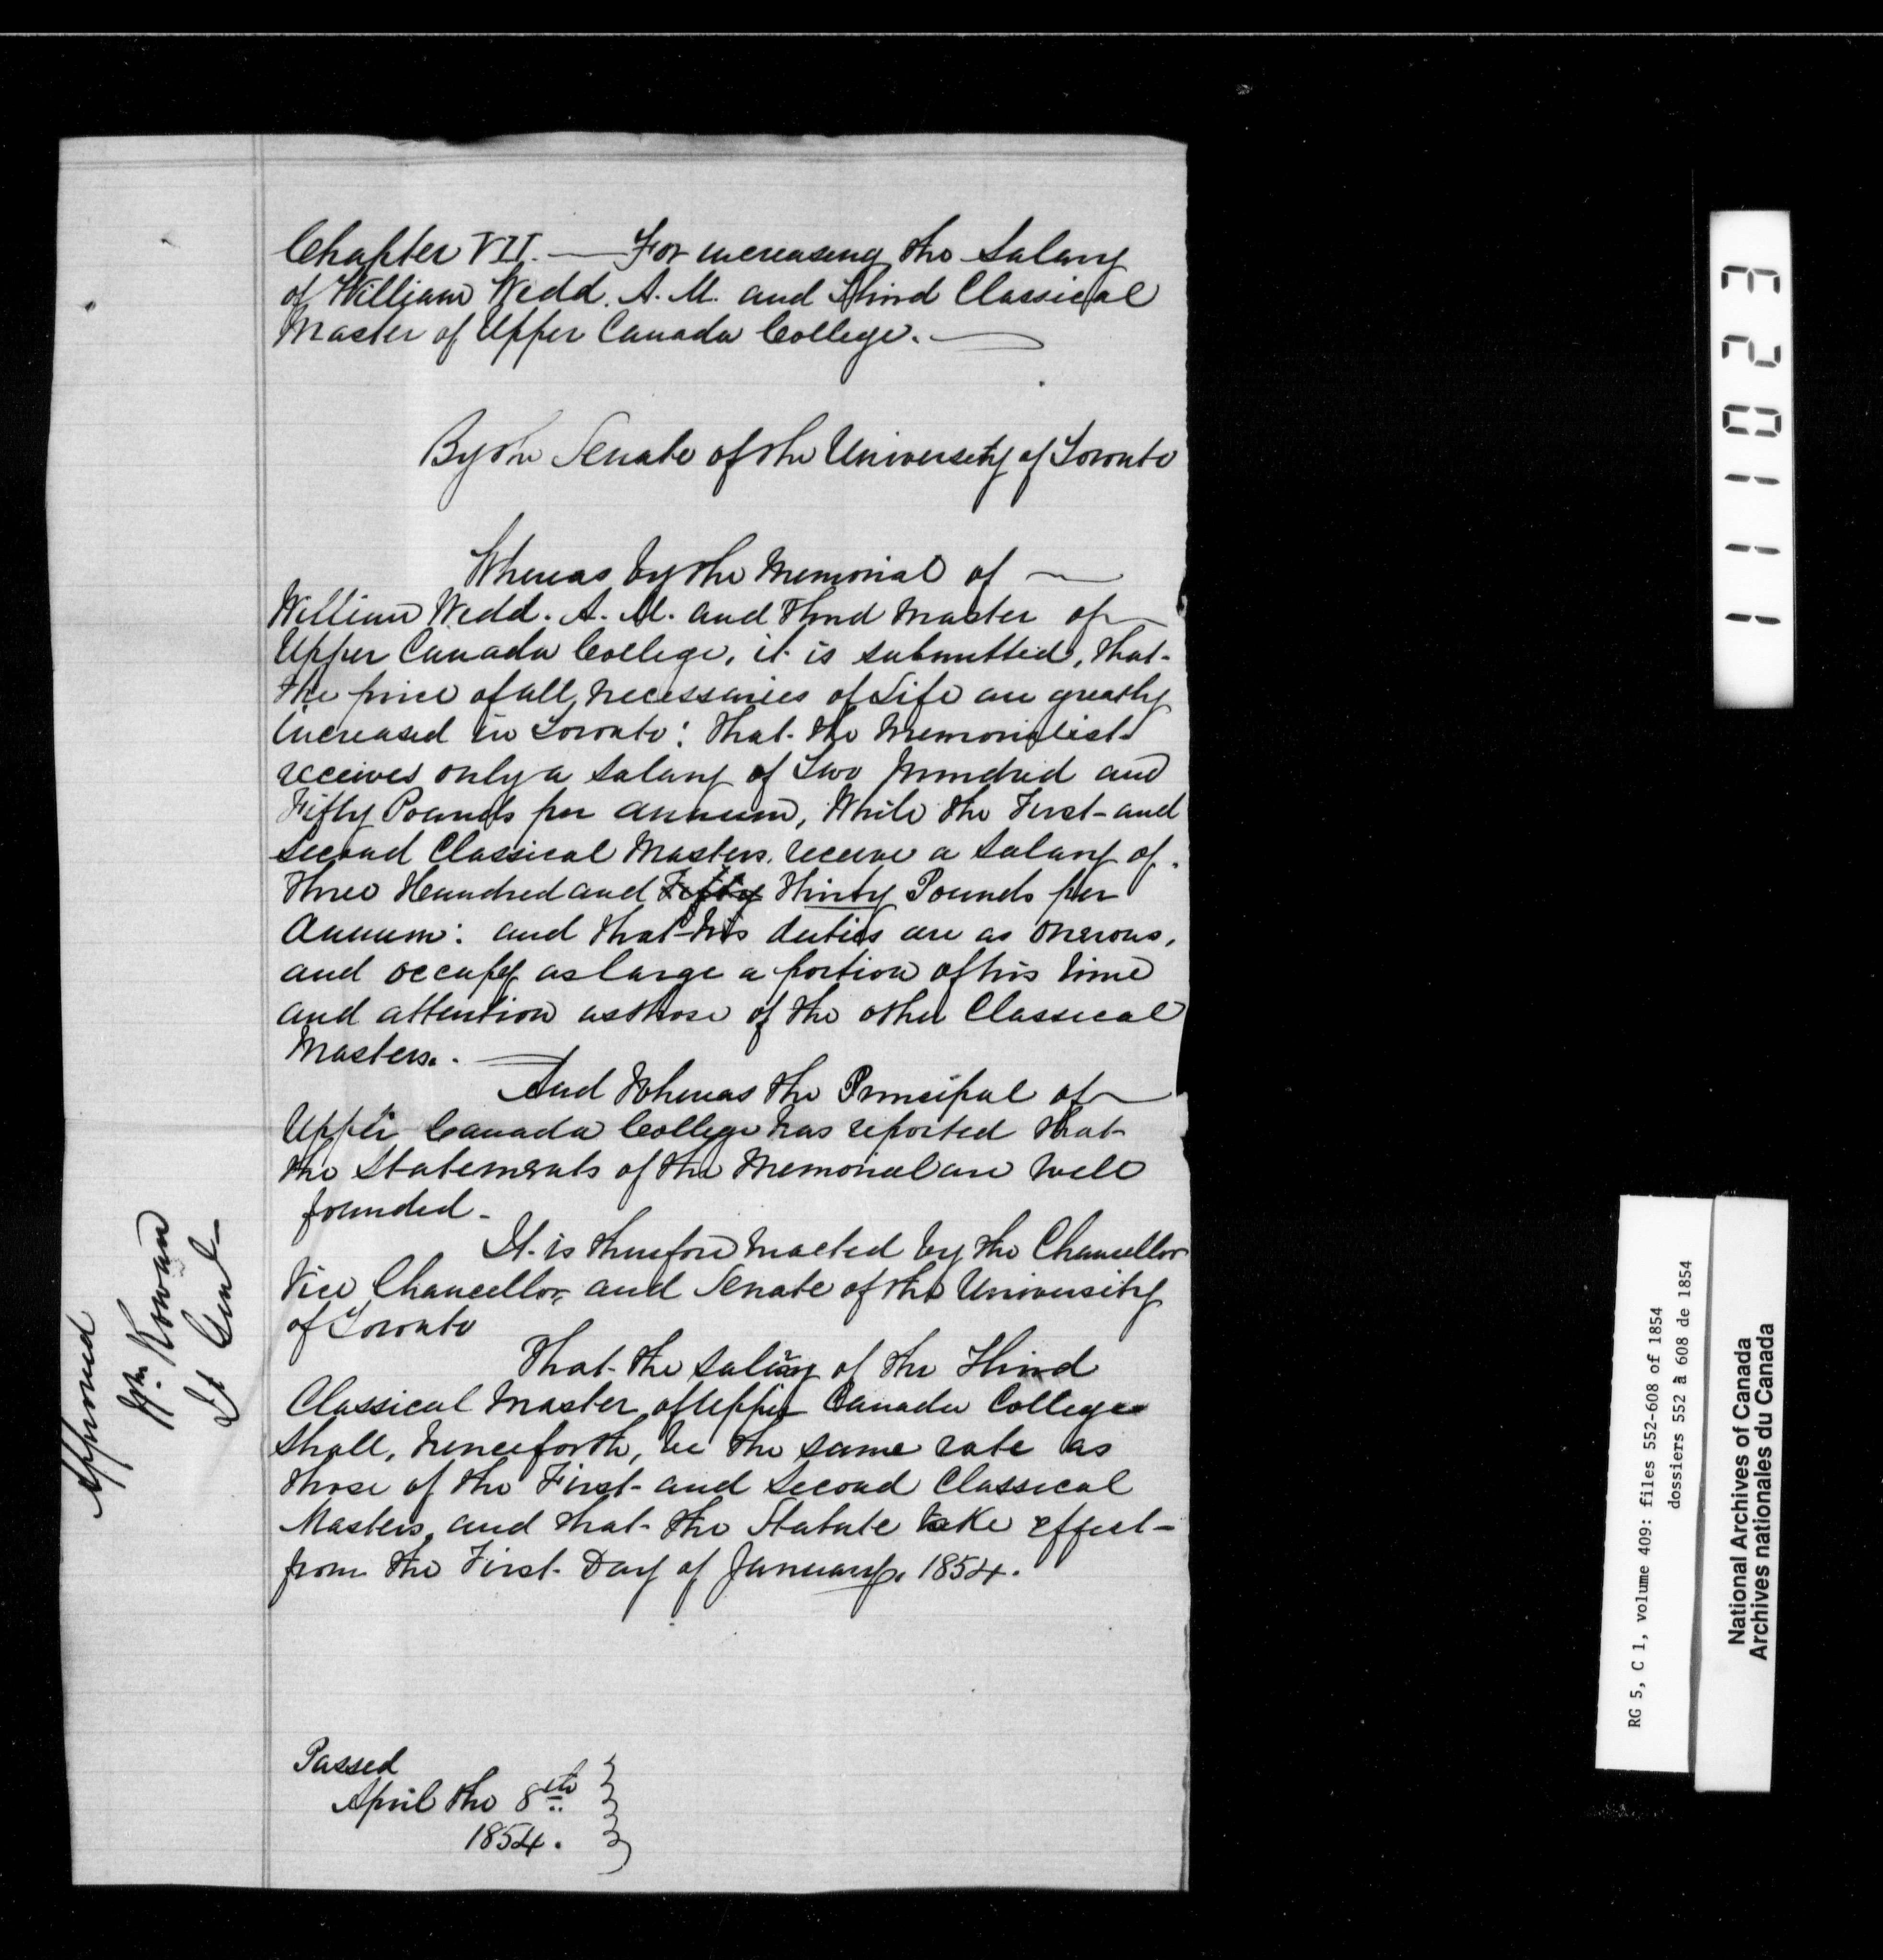 Chapter VII. — For increasing the Salary
of William Wedd. A. M. and Third Classical
Master of Upper Canada College. —
By the Senate of the University of Toronto
Whereas by the Memorial of —
William Wedd. A. M. and Third Master of
Upper Canada College, it is submitted, that
the price of all necessaries of Life are greatly
increased in Toronto: that the Memorialist
receives only a Salary of Two Hundred and
Fifty Pounds per annum, While the First and
Second Classical Masters receive a Salary of
Three Hundred and Fifty Thirty Pounds per
Annum: and that his duties are as onerous,
and occupy as large a portion of his time
and attention as those of the other Classical
Masters. —
And Whereas the Principal of
Upper Canada College has reported that
the Statements of the Memorial are well
founded -
It is therefore enacted by the Chancellor
Vice Chancellor, and Senate of the University
of Toronto
That the Salary of the Third
Classical Master of Upper Canada College
shall, henceforth, be the same rate as
those of the First and Second Classical
Masters, and that the Statute take effect
from the First Day of January, 1854.
Passed
April the 8th
1854.
Approved
Wm. Rowan
Lt Genl
111023
RG 5, C 1, volume 409: files 552-608 of 1854
dossiers 552 à 608 de 1854
National Archives of Canada
Archives nationales du Canada